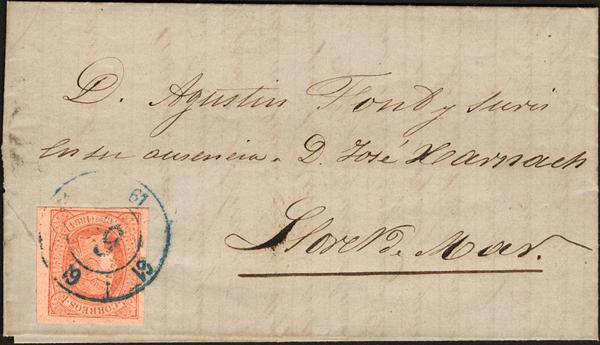 D. Agustin Font y Suris
En su ausencia. D. José Xarnach
Lloret de Mar.
19
61
CORREOS